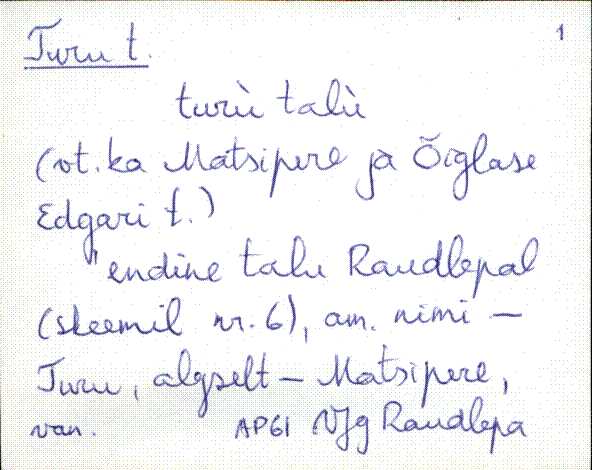 Turu t. 1
turù talù
(vt. ka Matsipere ja Õiglase
Edgari t.)
"endine talu Raudlepal
(skeemil nr. 6), am. nimi —
Turu, algselt — Matsipere,
van. AP61 VJg Raudlepa